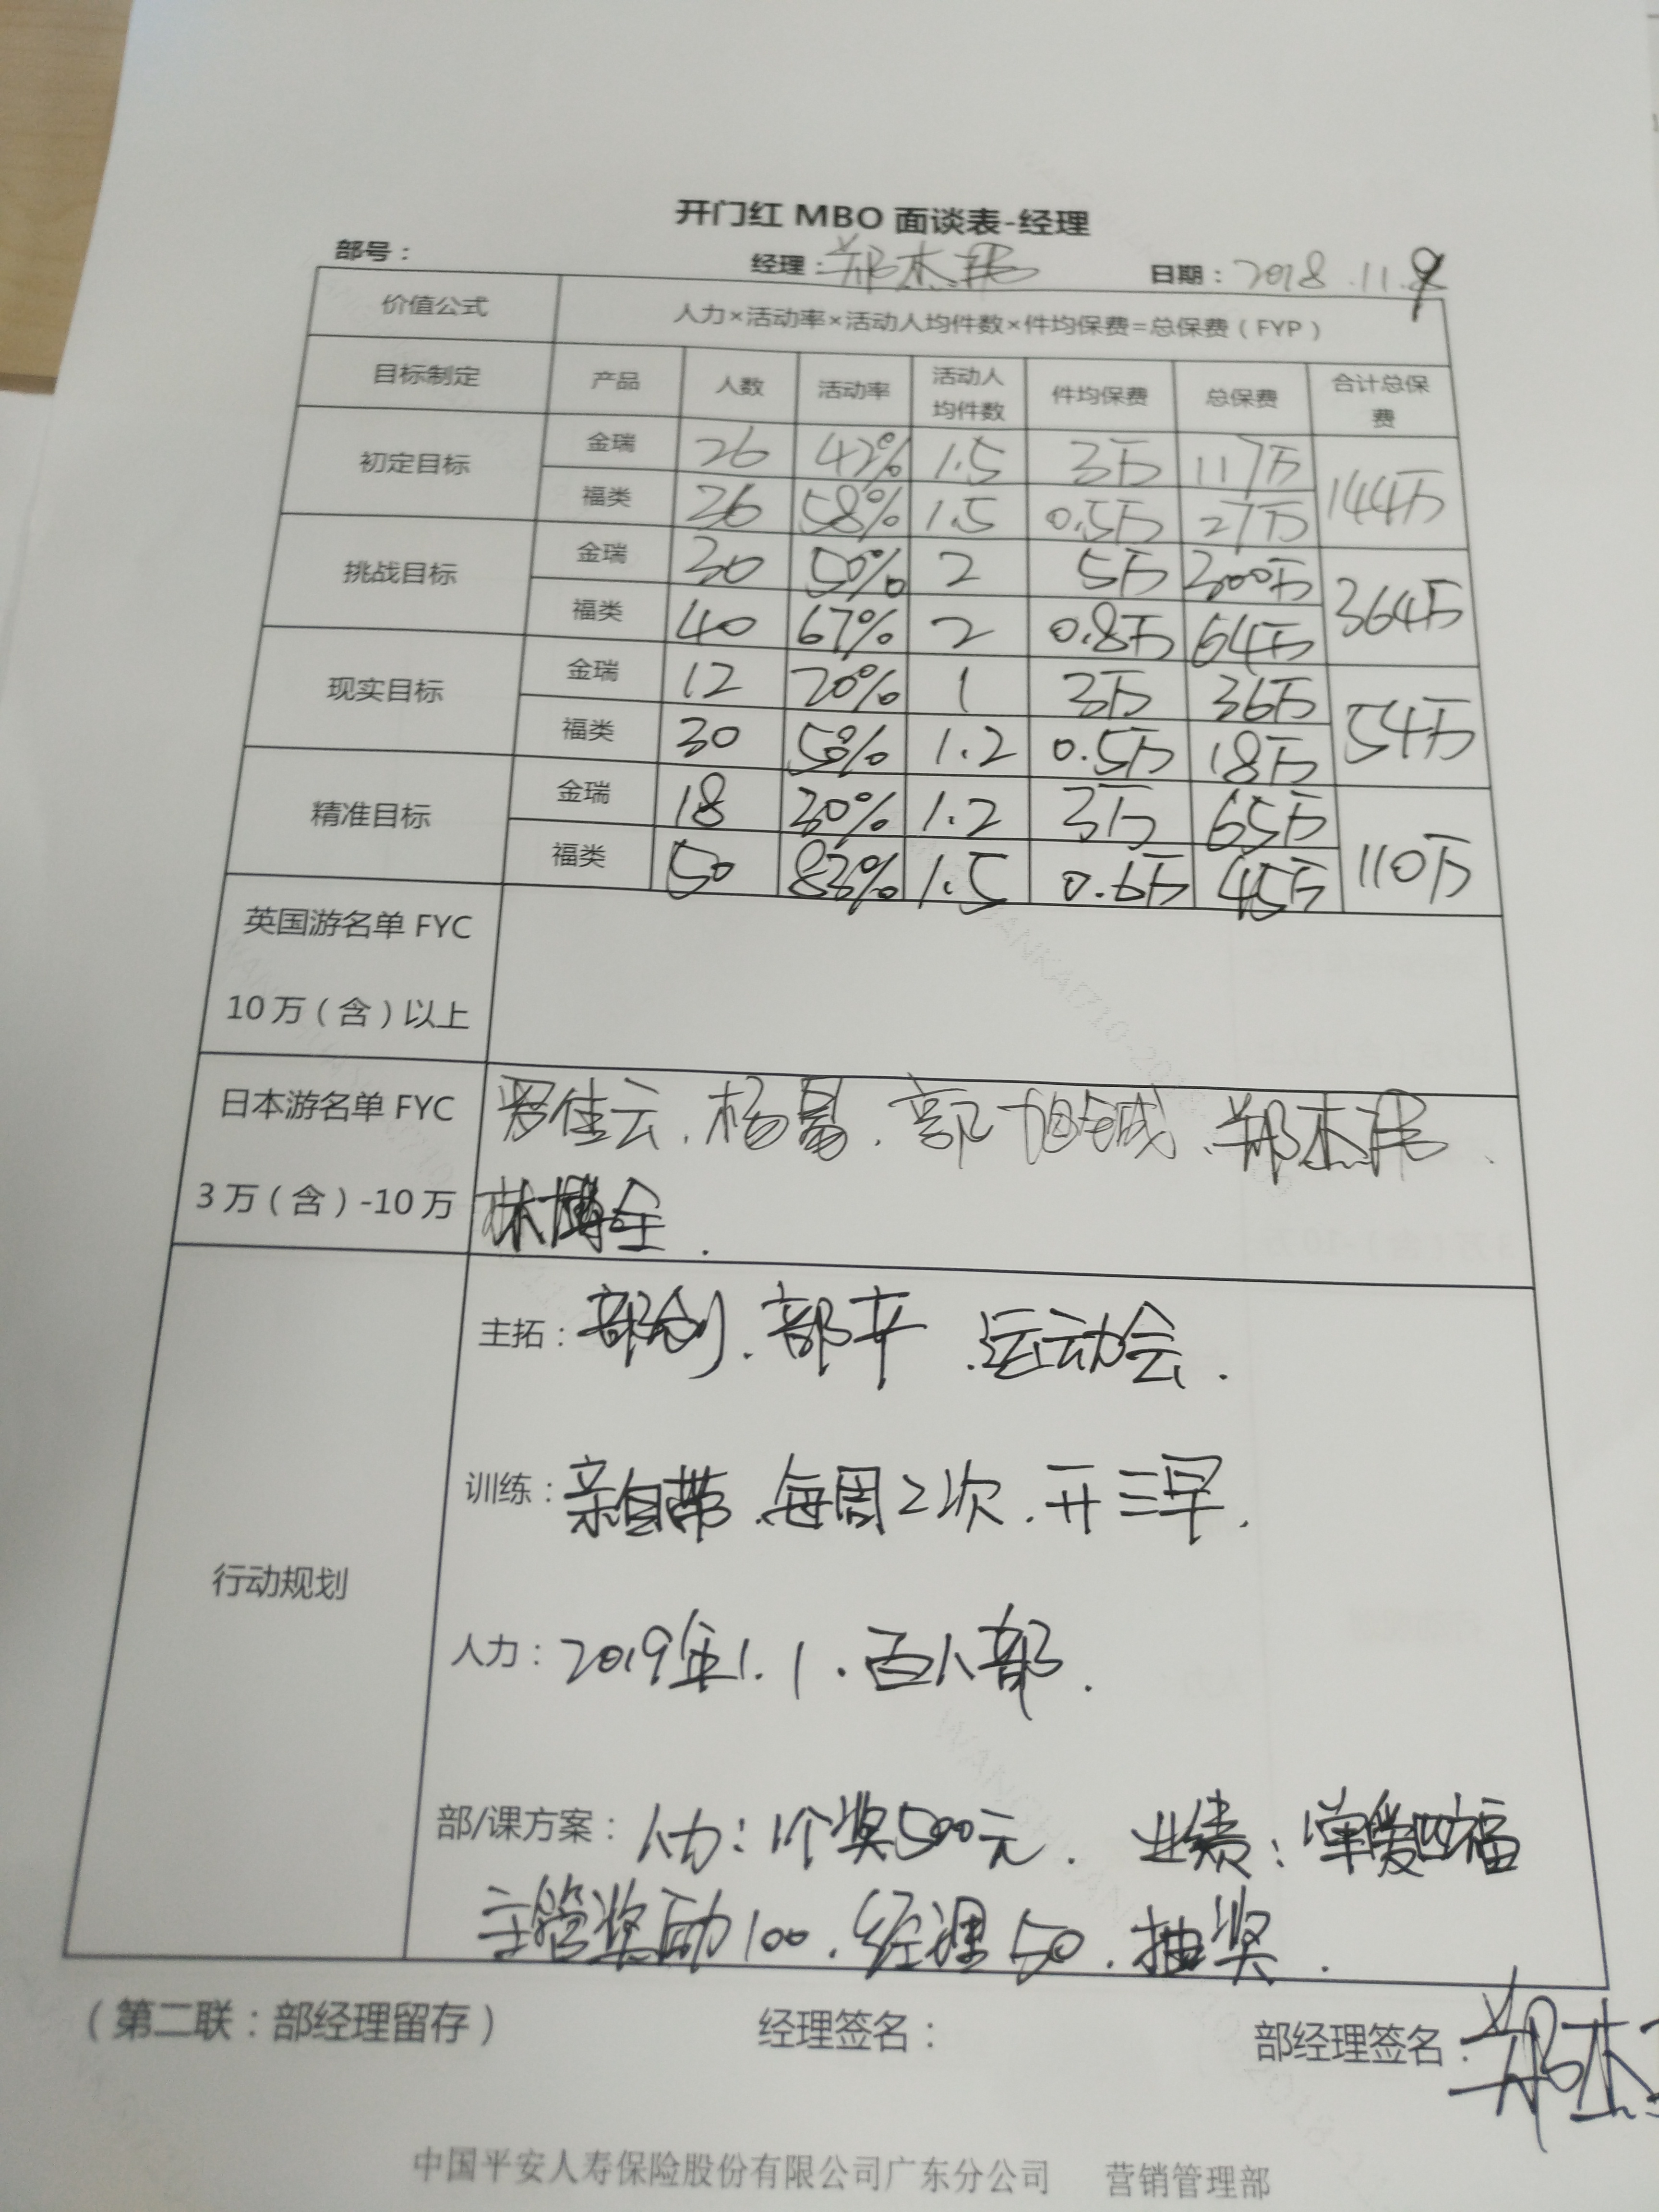 开门红 MBO 面谈表-经理
部号： 经理：郑杰伟 日期：2018.11.9
价值公式 人力×活动率×活动人均件数×件均保费=总保费（FYP）
目标制定 产品 人数 活动率 活动人均件数 件均保费 总保费 合计总保费
初定目标 金瑞 26 42% 1.5 3万 117万 144万
福类 26 58% 1.5 0.5万 27万
挑战目标 金瑞 30 50% 2 5万 300万 364万
福类 40 67% 2 0.8万 64万
现实目标 金瑞 12 20% 1 3万 36万 54万
福类 30 50% 1.2 0.5万 18万
精准目标 金瑞 18 30% 1.2 3万 65万 110万
福类 50 83% 1.5 0.6万 45万
英国游名单 FYC
10 万（含）以上
日本游名单 FYC 罗佳云、杨 、郭 、郑杰伟、
3 万（含）-10 万 林博全.
行动规划
主拓：部创、部 、运动会.
训练：亲自带、每周2次、开三早.
人力：2019年1.1、百人部.
部/课方案：人力：1个奖500元. 业绩：单 四福
主管奖励100、经理50、抽奖.
（第二联：部经理留存） 经理签名： 部经理签名：郑杰
中国平安人寿保险股份有限公司广东分公司 营销管理部